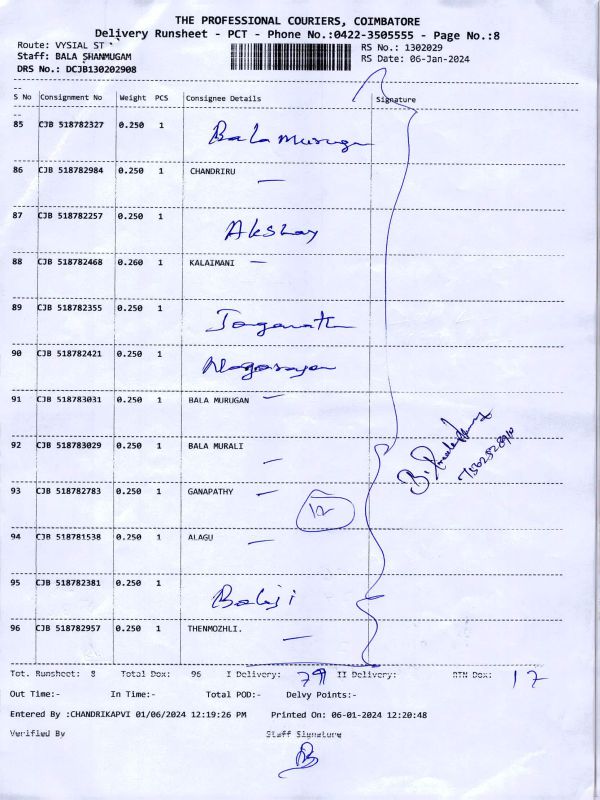 THE PROFESSIONAL COURIERS, COIMBATORE
Delivery Runsheet - PCT - Phone No.:0422-3505555 - Page No.:8
Route: VYSIAL ST
RS No.: 1302029
Staff: BALA SHANMUGAM
RS Date: 06-Jan-2024
DRS No.: DCJB130202908
S No Consignment No Weight PCS Consignee Details Signature
85 CJB 518782327 0.250 1 Balamurugan
86 CJB 518782984 0.250 1 CHANDRIRU
87 CJB 518782257 0.250 1 Akshay
88 CJB 518782468 0.260 1 KALAIMANI
89 CJB 518782355 0.250 1 Jaganath
90 CJB 518782421 0.250 1 Nagarajan
91 CJB 518783031 0.250 1 BALA MURUGAN
92 CJB 518783029 0.250 1 BALA MURALI
93 CJB 518782783 0.250 1 GANAPATHY
12
94 CJB 518781538 0.250 1 ALAGU
95 CJB 518782381 0.250 1 Balaji
96 CJB 518782957 0.250 1 THENMOZHLI.
Tot. Runsheet: 8 Total Dox: 96 I Delivery: 79 II Delivery: RTN Dox: 17
Out Time:- In Time:- Total POD:- Delvy Points:-
Entered By :CHANDRIKAPVI 01/06/2024 12:19:26 PM Printed On: 06-01-2024 12:20:48
Verified By Staff Signature